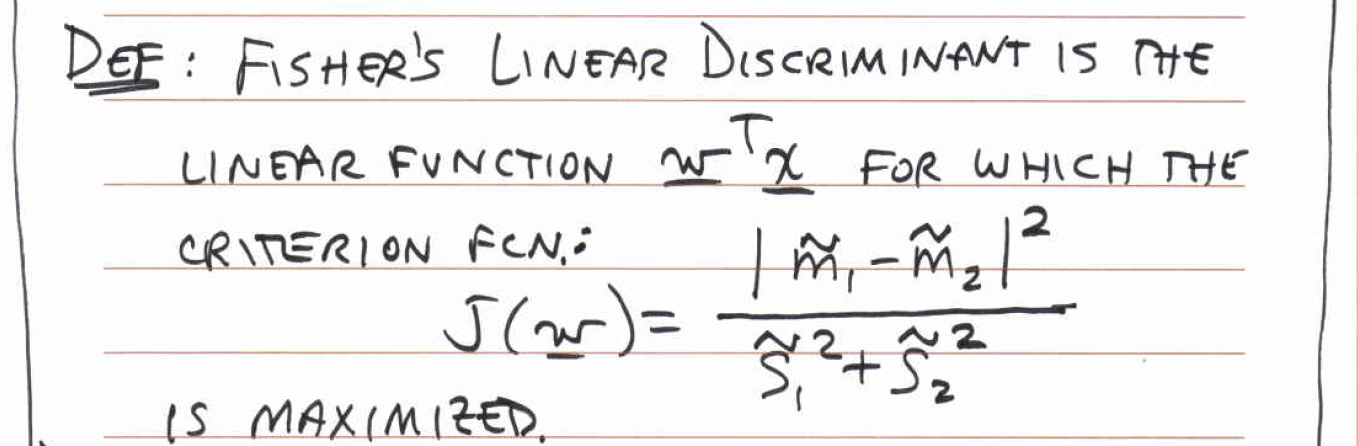 DEF: FISHER'S LINEAR DISCRIMINANT IS THE
LINEAR FUNCTION w^T x FOR WHICH THE
CRITERION FCN.:
J(w) = |m̃₁ - m̃₂|² / (s̃₁² + s̃₂²)
IS MAXIMIZED.